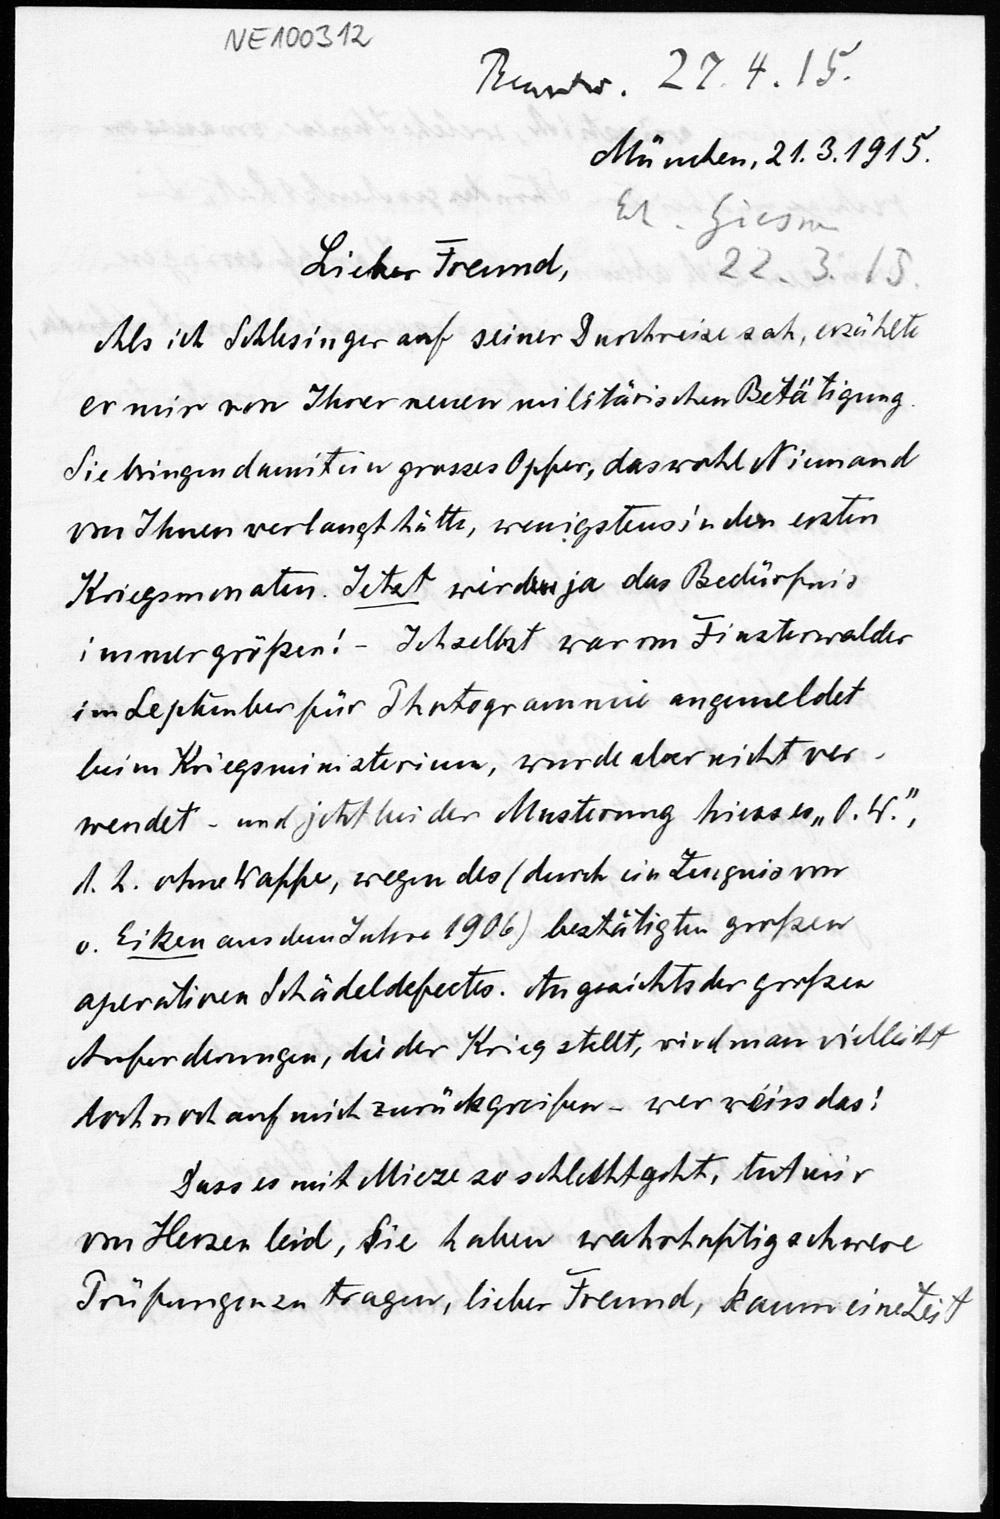 NE100312
Beantw. 27.4.15.
München, 21.3.1915.
Er. Giessen
22.3.15.
Lieber Freund,
Als ich Schlesinger auf seiner Durchreise sah, erzählte
er mir von Ihrer neuen militärischen Betätigung.
Sie bringen damit ein grosses Opfer, das wohl Niemand
von Ihnen verlangt hätte, wenigstens in den ersten
Kriegsmonaten. Jetzt wird ja das Bedürfnis
immer größer! - Ich selbst war von Finsterwalder
im September für Photogrammie angemeldet
beim Kriegsministerium, wurde aber nicht ver-
wendet - und jetzt bei der Musterung hiess es „O. W.",
d. h. ohne Waffe, wegen des (durch ein Zeugnis von
v. Eiken aus dem Jahre 1906) bestätigten großen
operativen Schädeldefectes. Angesichts der großen
Anforderungen, die der Krieg stellt, wird man vielleicht
doch noch auf mich zurückgreifen - wer weiss das!
Dass es mit Mieze so schlecht geht, tut mir
von Herzen leid, Sie haben wahrhaftig schwere
Prüfungen zu tragen, lieber Freund, kaum eine Zeit